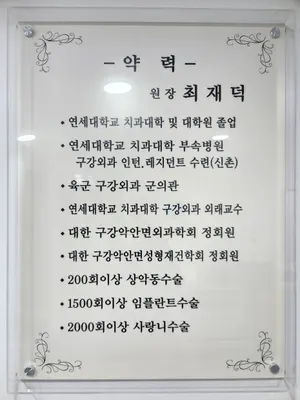 - 약 력 -
원장 최재덕
• 연세대학교 치과대학 및 대학원 졸업
• 연세대학교 치과대학 부속병원
구강외과 인턴.레지던트 수련(신촌)
• 육군 구강외과 군의관
• 연세대학교 치과대학 구강외과 외래교수
• 대한 구강악안면외과학회 정회원
• 대한 구강악안면성형재건학회 정회원
• 200회이상 상악동수술
• 1500회이상 임플란트수술
• 2000회이상 사랑니수술